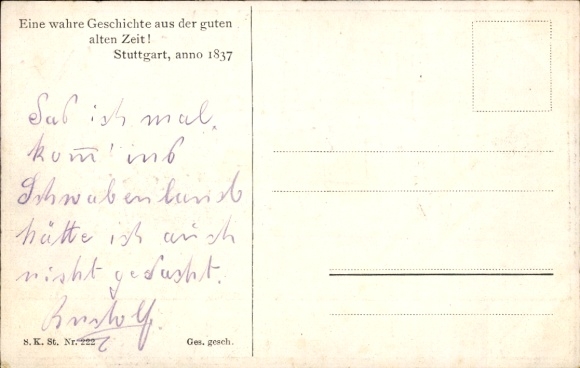 Eine wahre Geschichte aus der guten
alten Zeit!
Stuttgart, anno 1837
Daß ich mal
kom̅' ins
Schwabenland
hätte ich auch
nicht gedacht.
Rudolf
S. K. St. Nr. 222
Ges. gesch.